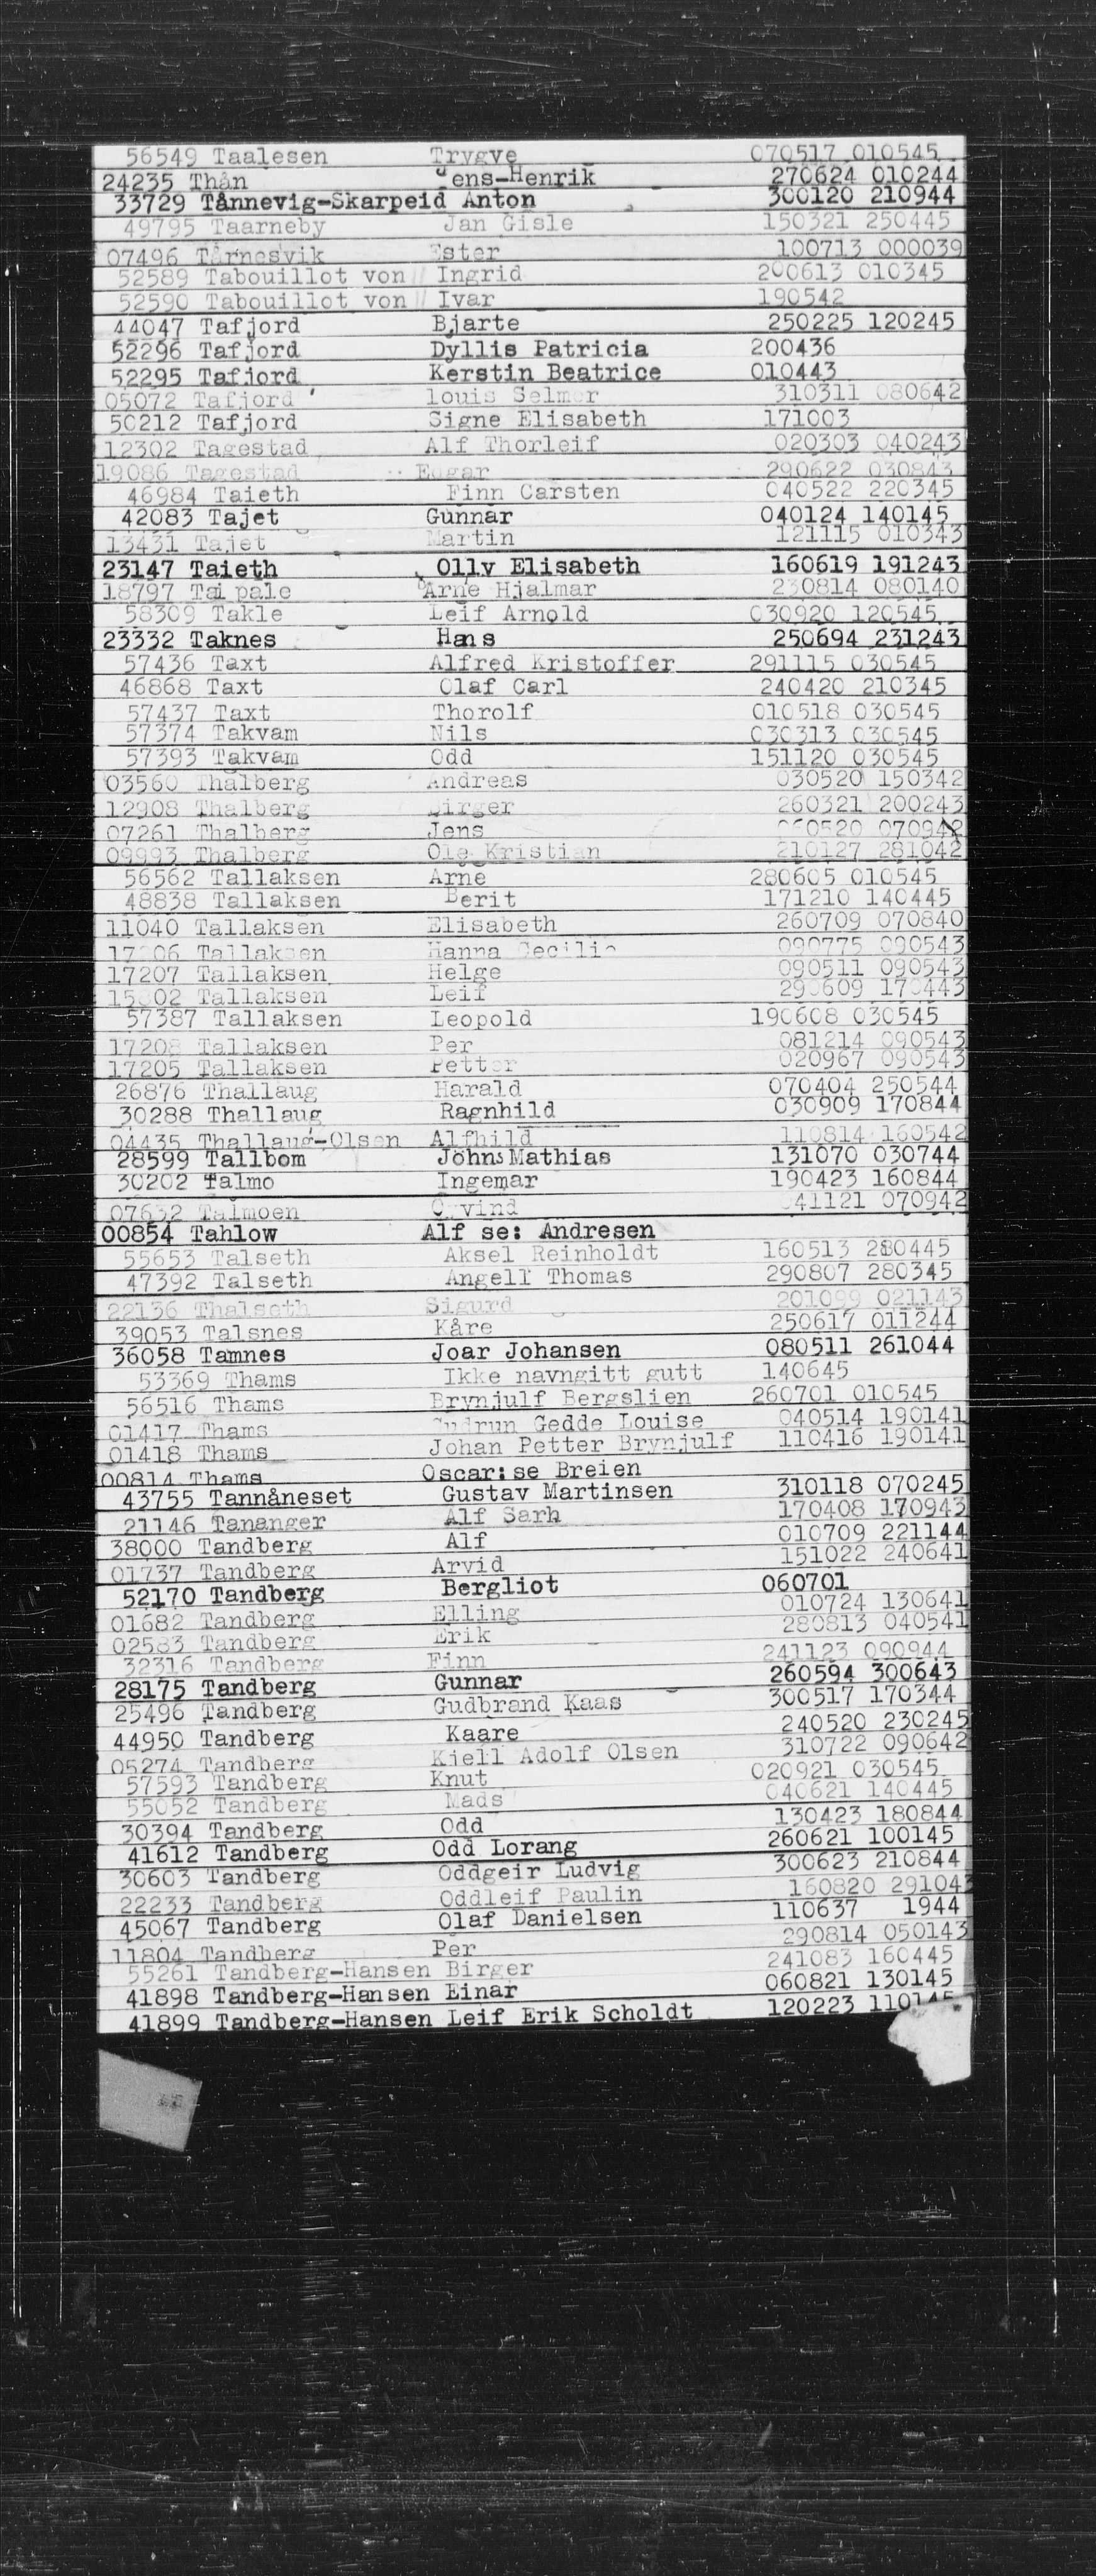 56549 Taalesen Trygve 070517 010545
24235 Thån Jens-Henrik 270624 010244
33729 Tånnevig-Skarpeid Anton 300120 210944
49795 Taarneby Jan Gisle 150321 250445
07496 Tårnesvik Ester 100713 000039
52589 Tabouillot von Ingrid 200613 010345
52590 Tabouillot von Ivar 190542
44047 Tafjord Bjarte 250225 120245
52296 Tafjord Dyllis Patricia 200436
52295 Tafjord Kerstin Beatrice 010443
05072 Tafjord louis Selmer 310311 080642
50212 Tafjord Signe Elisabeth 171003
12302 Tagestad Alf Thorleif 020303 040243
19086 Tagestad Edgar 290622 030843
46984 Taieth Finn Carsten 040522 220345
42083 Tajet Gunnar 040124 140145
13431 Tajet Martin 121115 010343
23147 Taieth Olly Elisabeth 160619 191243
18797 Taipale Arne Hjalmar 230814 080140
58309 Takle Leif Arnold 030920 120545
23332 Taknes Hans 250694 231243
57436 Taxt Alfred Kristoffer 291115 030545
46868 Taxt Olaf Carl 240420 210345
57437 Taxt Thorolf 010518 030545
57374 Takvam Nils 030313 030545
57393 Takvam Odd 151120 030545
03560 Thalberg Andreas 030520 150342
12908 Thalberg Birger 260321 200243
07261 Thalberg Jens 070942
09993 Thalberg Ole Kristian 210127 281042
56562 Tallaksen Arne 280605 010545
48838 Tallaksen Berit 171210 140445
11040 Tallaksen Elisabeth 260709 070840
Tallaksen Hanna Cecilie 090775 090543
17207 Tallaksen Helge 090511 090543
Tallaksen Leif
57387 Tallaksen Leopold 190608 030545
17208 Tallaksen Per 081214 090543
17205 Tallaksen Petter 020967 090543
26876 Thallaug Harald 070404 250544
30288 Thallaug Ragnhild 030909 170844
04435 Thallaug-Olsen Alfhild 110814 160542
28599 Tallbom Johns Mathias 131070 030744
30202 Talmo Ingemar 190423 160844
07632 Talmoen 070942
00854 Tahlow Alf se: Andresen
55653 Talseth Aksel Reinholdt 160513 280445
47392 Talseth Angell Thomas 290807 280345
22136 Thalseth Sigurd 201099 021143
39053 Talsnes Kåre 250617 011244
36058 Tamnes Joar Johansen 080511 261044
53369 Thams Ikke navngitt gutt 140645
56516 Thams Brynjulf Bergslien 260701 010545
01417 Thams Gudrun Gedde Louise 040514 190141
01418 Thams Johan Petter Brynjulf 110416 190141
00814 Thams Oscar:se Breien
43755 Tannåneset Gustav Martinsen 310118 070245
21146 Tananger Alf Sarh 170408 170943
38000 Tandberg Alf 010709 221144
01737 Tandberg Arvid 151022 240641
52170 Tandberg Bergliot 060701
01682 Tandberg Elling 010724 130641
02583 Tandberg Erik 280813 040541
32316 Tandberg Finn 241123 090944
28175 Tandberg Gunnar 260594 300643
25496 Tandberg Gudbrand Kaas 300517 170344
44950 Tandberg Kaare 240520 230245
05274 Tandberg Kjell Adolf Olsen 310722 090642
57593 Tandberg Knut 020921 030545
55052 Tandberg Mads 040621 140445
30394 Tandberg Odd 130423 180844
41612 Tandberg Odd Lorang 260621 100145
30603 Tandberg Oddgeir Ludvig 300623 210844
22233 Tandberg Oddleif Paulin 160820 291043
45067 Tandberg Olaf Danielsen 110637 1944
11804 Tandberg Per 290814 050143
55261 Tandberg-Hansen Birger 241083 160445
41898 Tandberg-Hansen Einar 060821 130145
41899 Tandberg-Hansen Leif Erik Scholdt 120223 110145